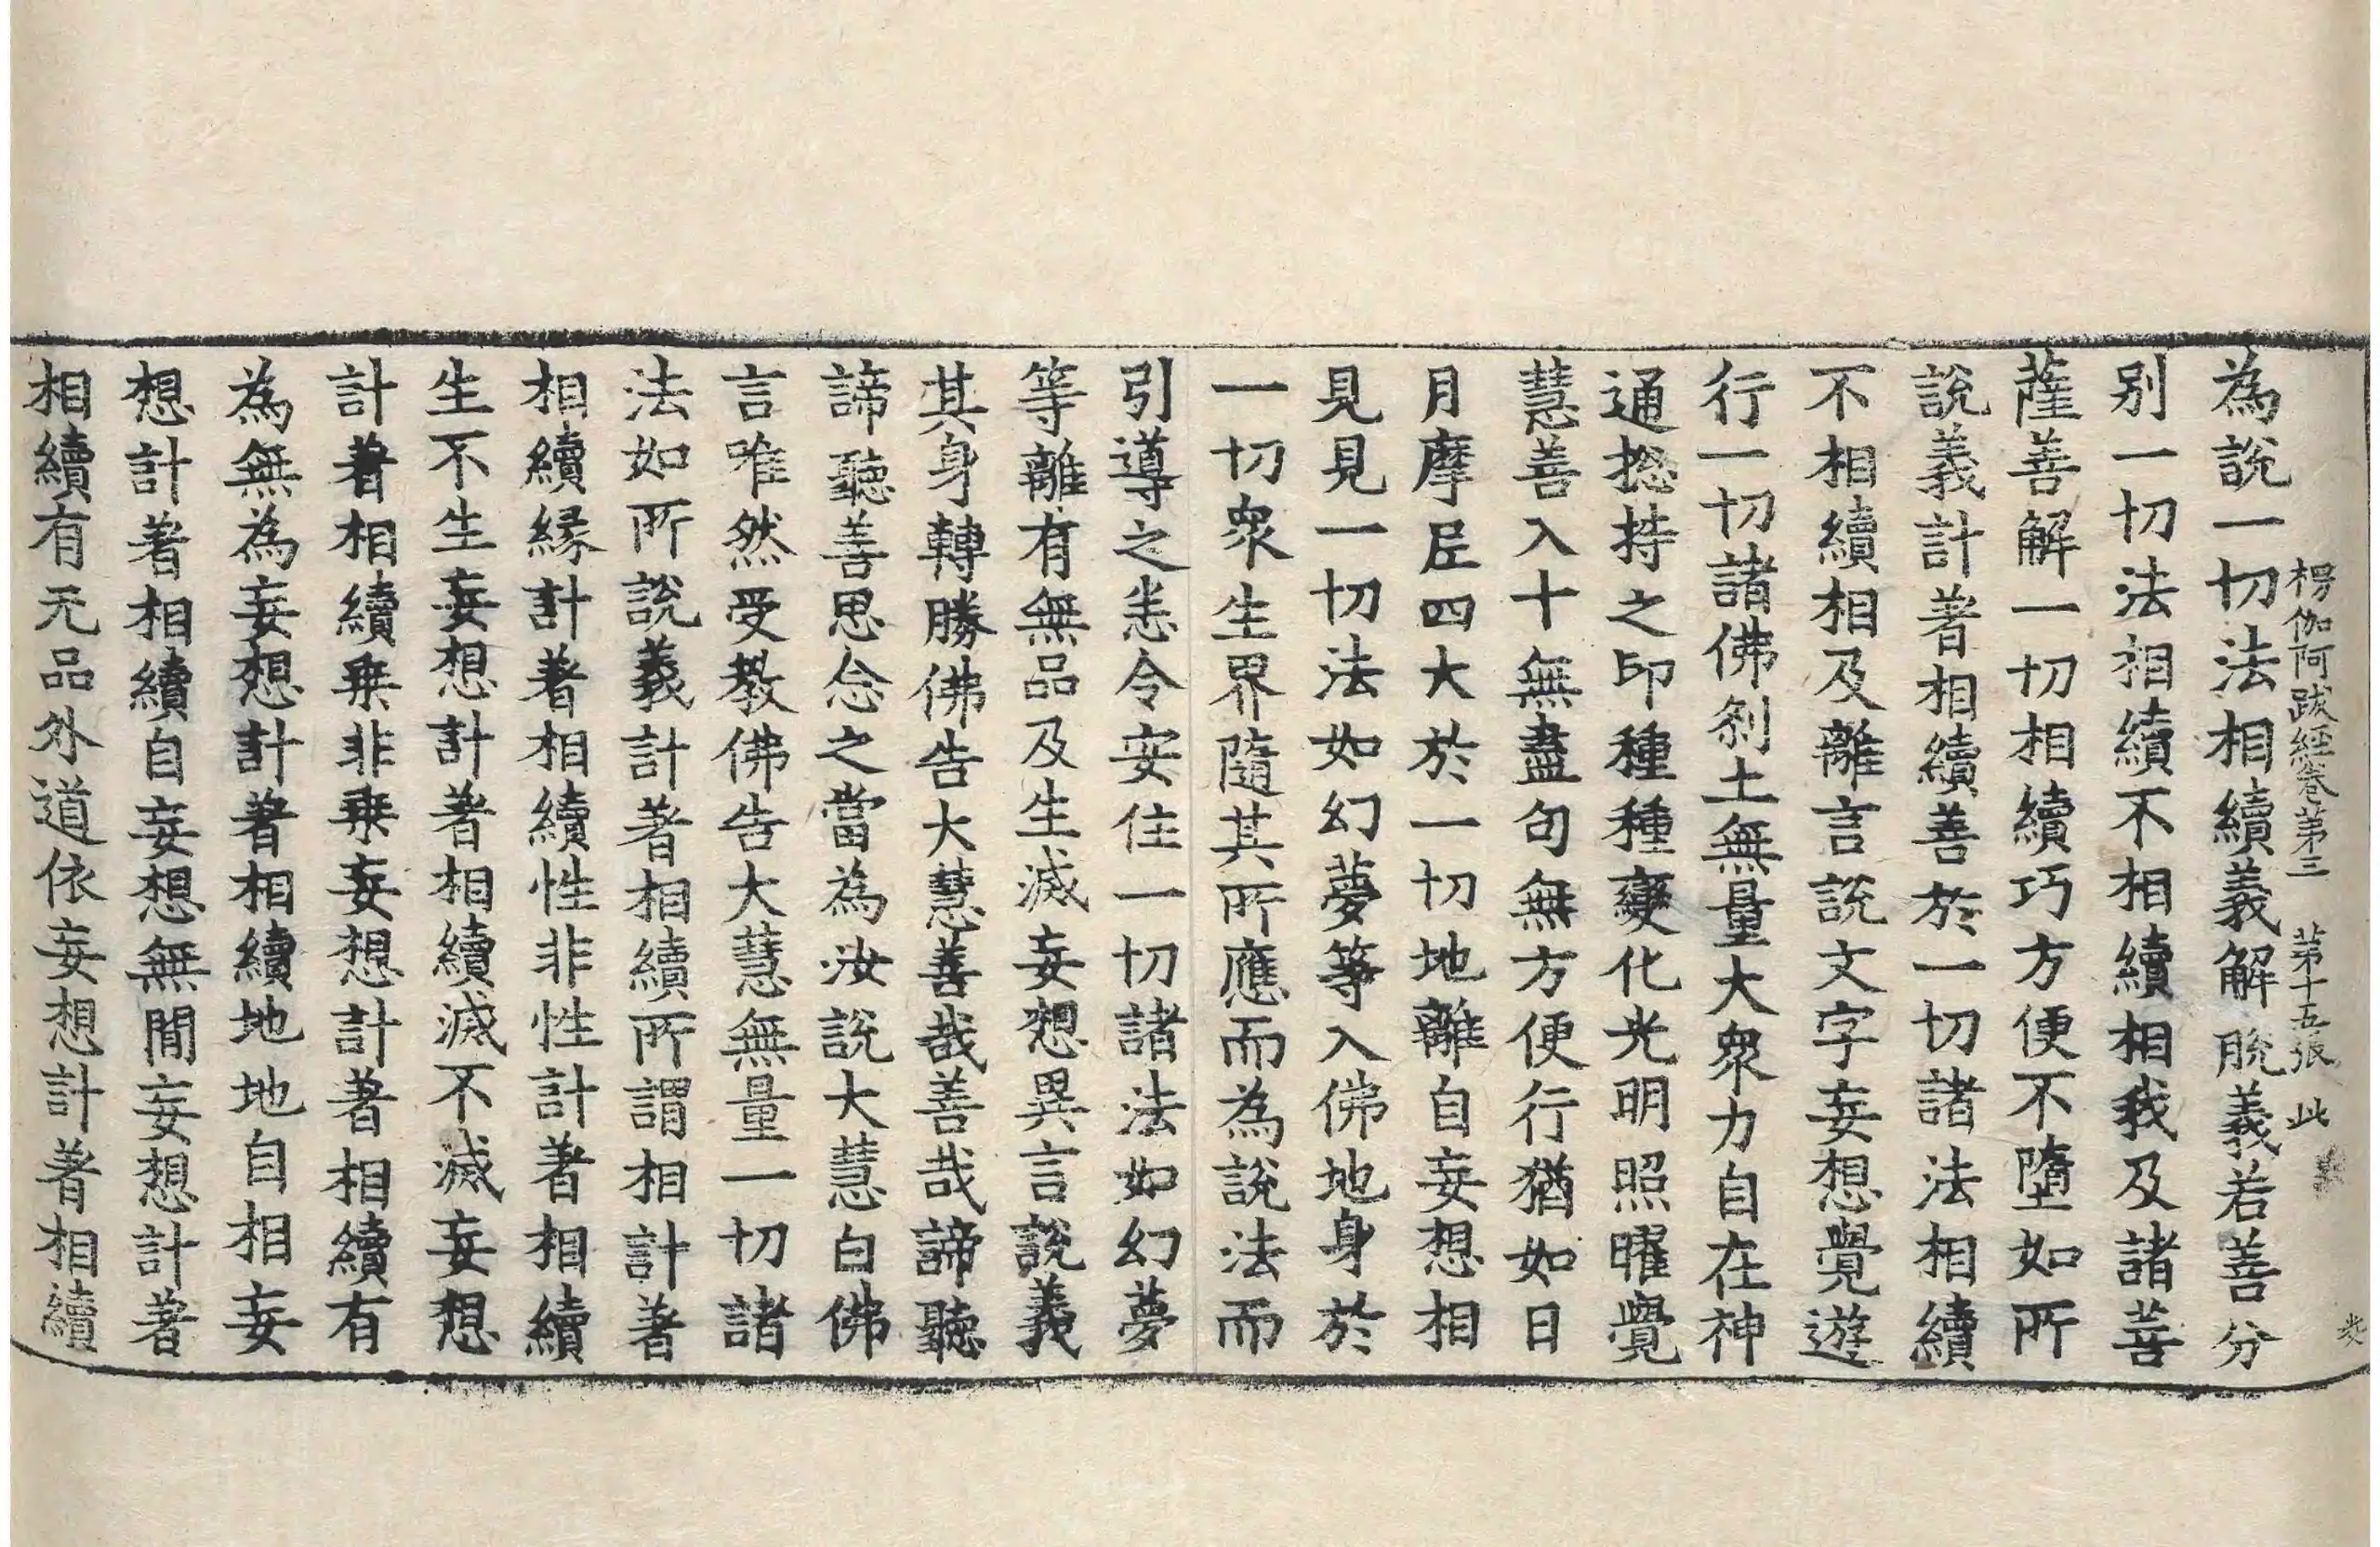 楞伽阿跋經卷第三　第十五張　此
為說一切法相續義解脫義若善分
別一切法相續不相續相我及諸菩
薩善解一切相續巧方便不墮如所
說義計著相續善於一切諸法相續
不相續相及離言說文字妄想覺遊
行一切諸佛刹土無量大衆力自在神
通揔持之印種種變化光明照曜覺
慧善入十無盡句無方便行猶如日
月摩尼四大於一切地離自妄想相
見見一切法如幻夢等入佛地身於
一切衆生界隨其所應而為說法而
引導之悉令安住一切諸法如幻夢
等離有無品及生滅妄想異言說義
其身轉勝佛告大慧善哉善哉諦聽
諦聽善思念之當為汝說大慧白佛
言唯然受教佛告大慧無量一切諸
法如所說義計著相續所謂相計著
相續緣計著相續性非性計著相續
生不生妄想計著相續滅不滅妄想
計著相續乗非乗妄想計著相續有
為無為妄想計著相續地地自相妄
想計著相續自妄想無間妄想計著
相續有无品外道依妄想計著相續